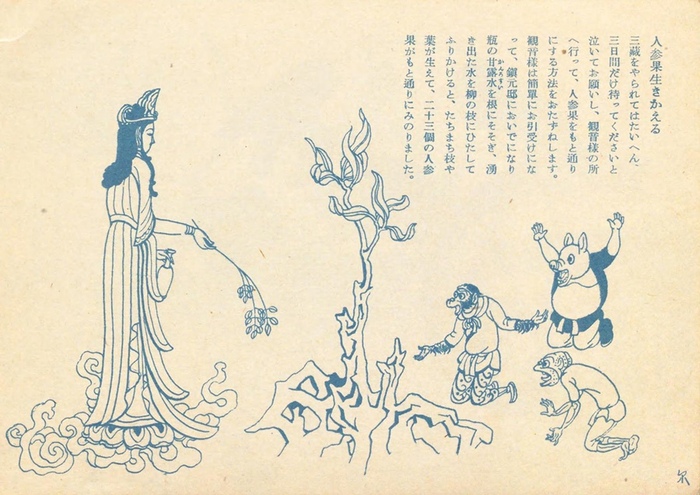 人参果生きかえる
三蔵をやられてはたいへん、
三日間だけ待ってくださいと
泣いてお願いし、観音様の所
へ行って、人参果をもと通り
にする方法をおたずねします。
観音様は簡單にお引受けにな
って、鎭元邸においでになり
瓶の甘露水を根にそそぎ、湧
き出た水を柳の枝にひたして
ふりかけると、たちまち枝や
葉が生えて、二十三個の人参
果がもと通りにみのりました。